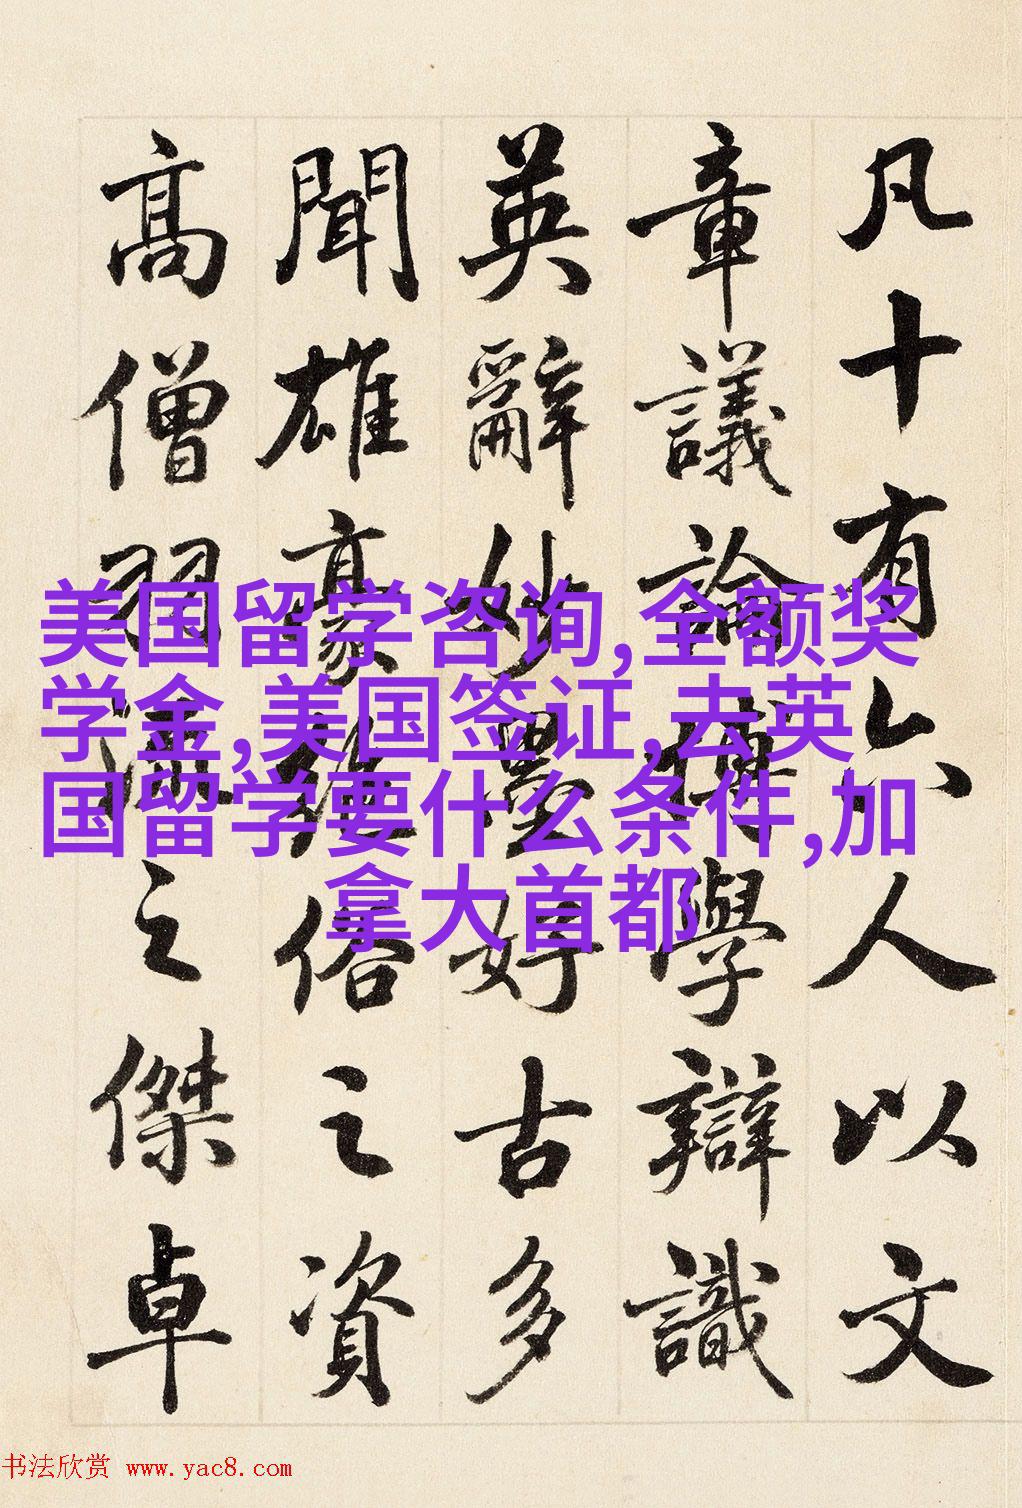 凡十有六人以文
章議論博學辯識
英辭妙墨好古多
聞雄豪絕俗之資
高僧羽流之傑卓
美国留学咨询,全额奖
学金,美国签证,去英
国留学要什么条件,加
拿大首都
书法欣赏 www.yac8.com